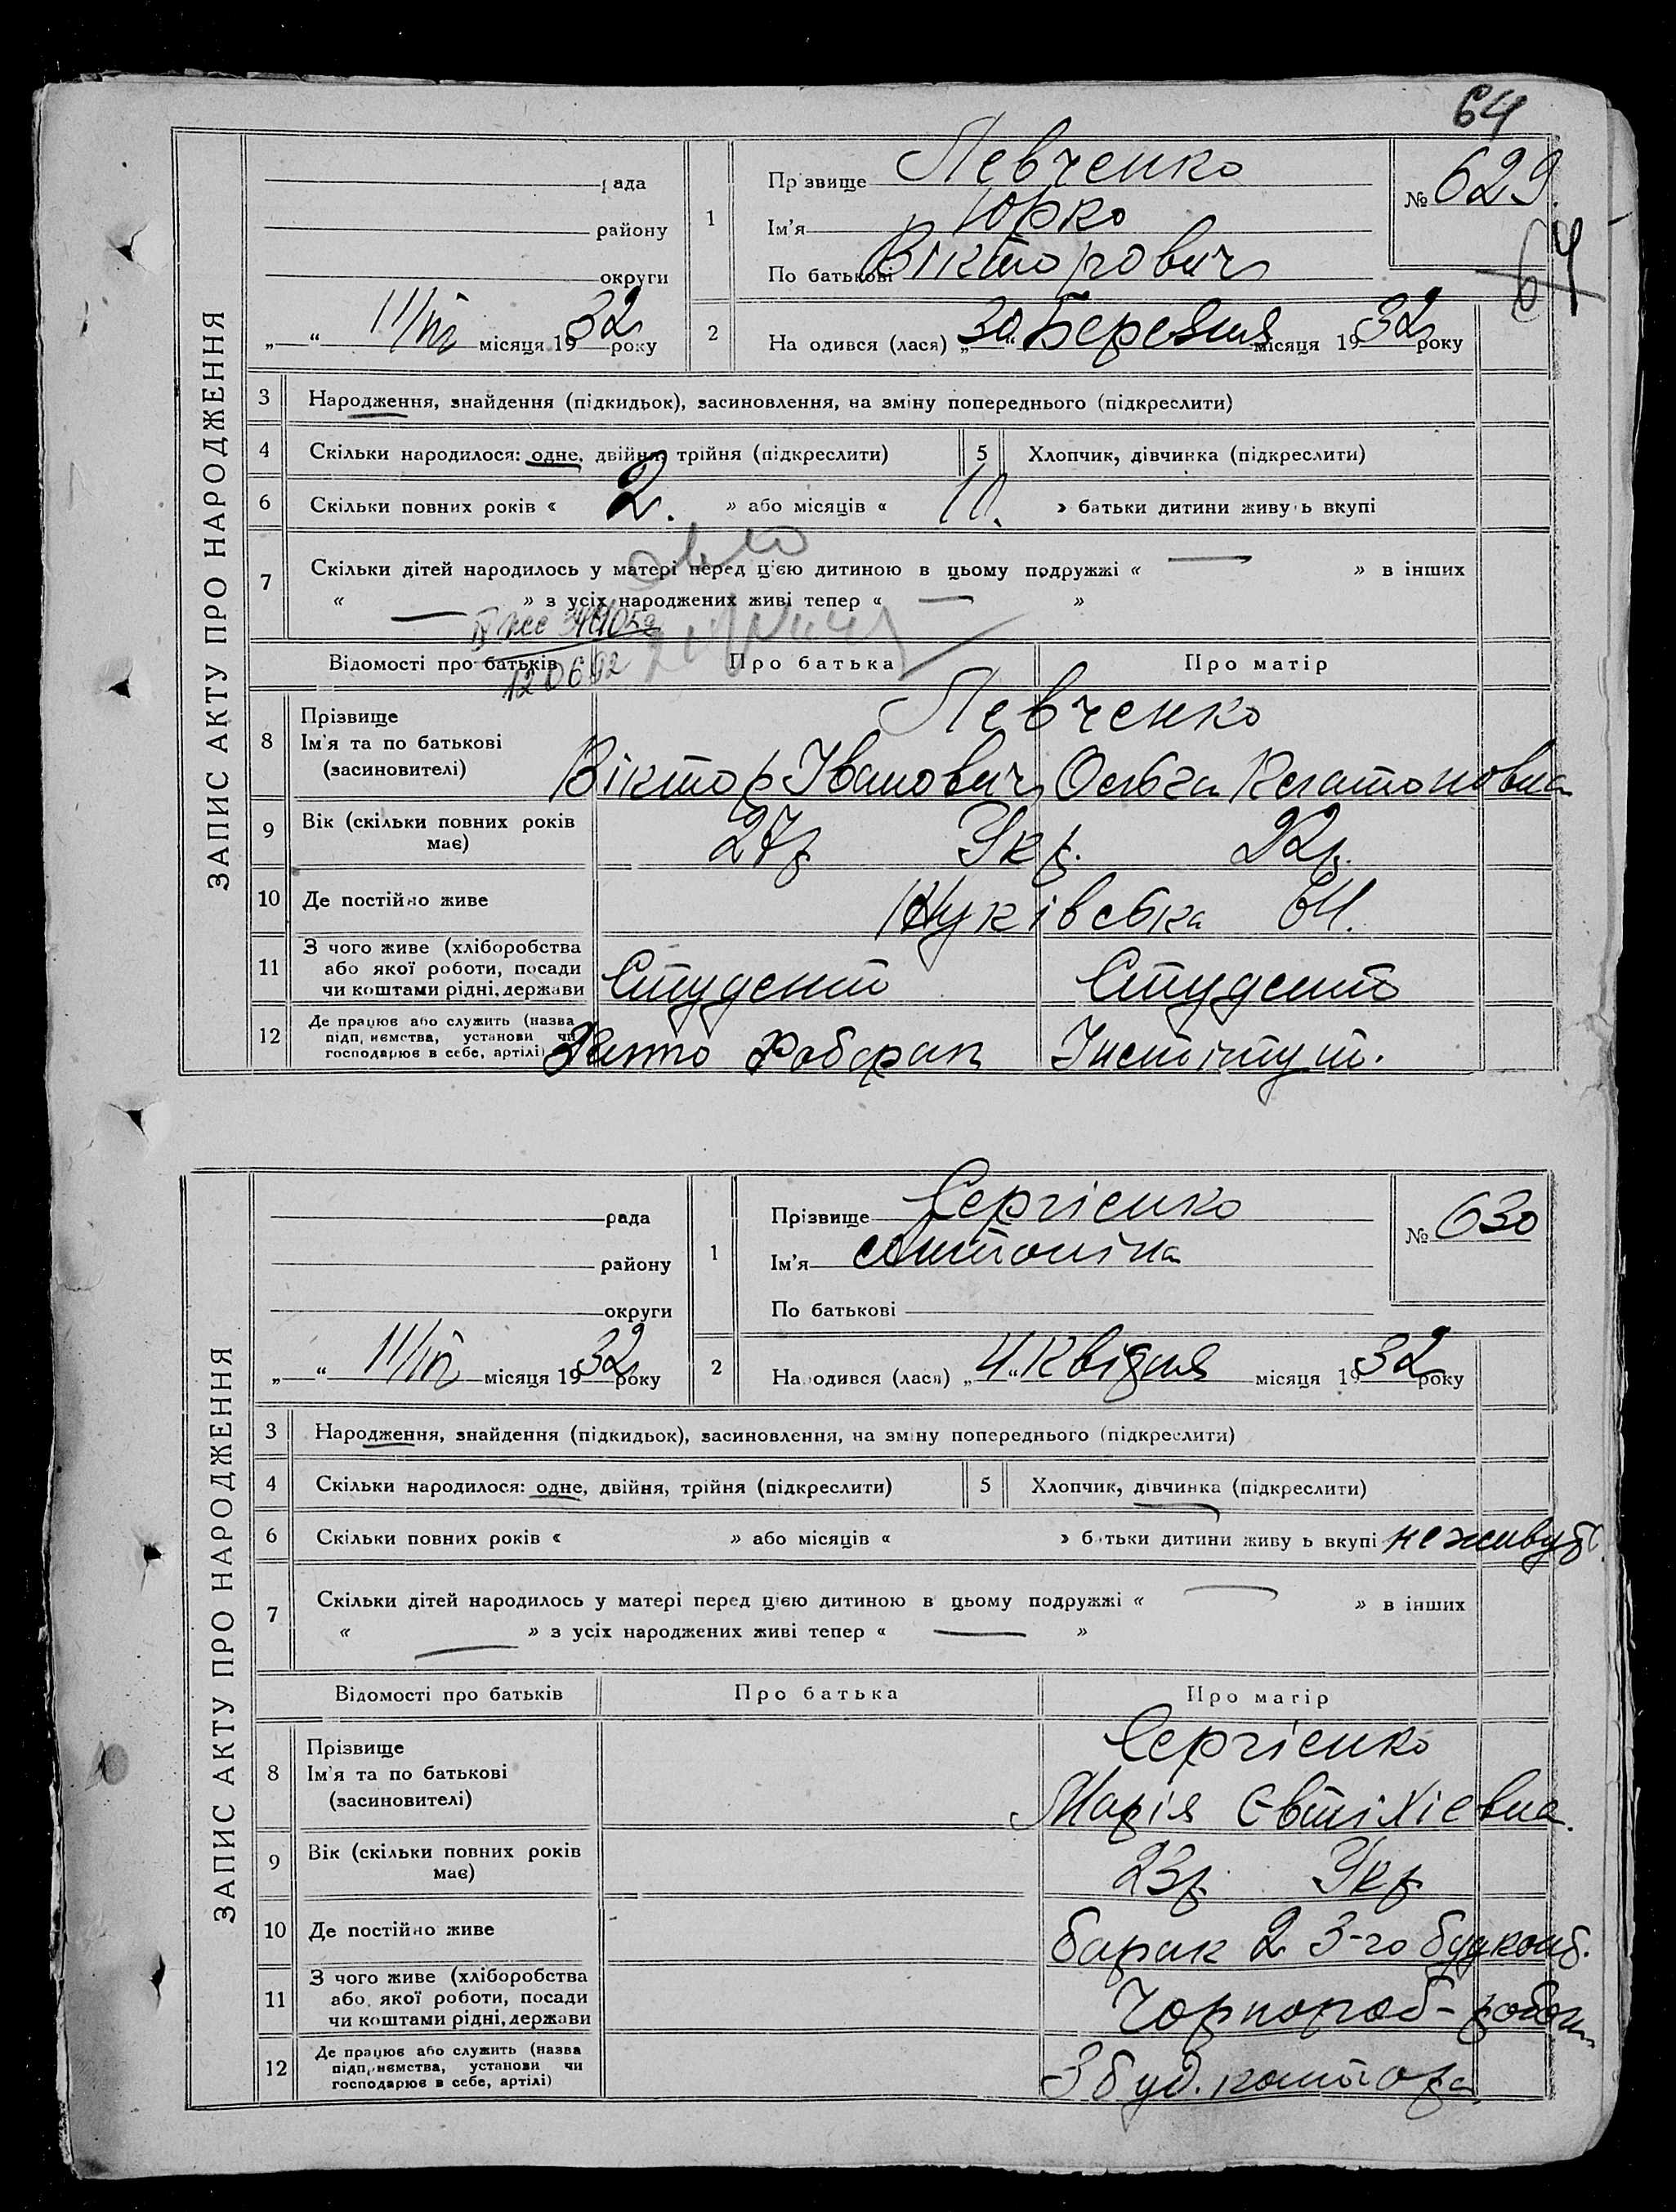 64
ЗАПИС АКТУ ПРО НАРОДЖЕННЯ
рада
району
округи
„ “ 11/IV місяця 1932 року
1
Прізвище Левченко
Ім'я Юрко
По батькові Вікторович
№ 629.
64
2 Народився (лася) „30“ Березня місяця 1932 року
3 Народження, знайдення (підкидьок), засиновлення, на зміну попереднього (підкреслити)
4 Скільки народилося: одне, двійня, трійня (підкреслити) 5 Хлопчик, дівчинка (підкреслити)
6 Скільки повних років « 2. » або місяців « 10. » батьки дитини живуть вкупі
7 Скільки дітей народилось у матері перед цією дитиною в цьому подружжі « — » в інших
« — » з усіх народжених живі тепер « — »
120692
Відомості про батьків Про батька Про матір
8 Прізвище
Ім'я та по батькові
(засиновителі)
Левченко
Віктор Іванович Ольга Платоновна
9 Вік (скільки повних років має) 27р Укр. 22р.
10 Де постійно живе
64.
11 З чого живе (хліборобства або якої роботи, посади чи коштами рідні, держави Студент Студент
12 Де працює або служить (назва підприємства, установи чи господарює в себе, артілі)
Інститут.
ЗАПИС АКТУ ПРО НАРОДЖЕННЯ
рада
району
округи
„ “ 11/IV місяця 1932 року
1
Прізвище Сергієнко
Ім'я Антоніна
По батькові
№ 630
2 Народився (лася) „4“ Квідня місяця 1932 року
3 Народження, знайдення (підкидьок), засиновлення, на зміну попереднього (підкреслити)
4 Скільки народилося: одне, двійня, трійня (підкреслити) 5 Хлопчик, дівчинка (підкреслити)
6 Скільки повних років « » або місяців « » батьки дитини живуть вкупі не живуть.
7 Скільки дітей народилось у матері перед цією дитиною в цьому подружжі « — » в інших
« — » з усіх народжених живі тепер « — »
Відомості про батьків Про батька Про матір
8 Прізвище
Ім'я та по батькові
(засиновителі)
Сергієнко
Марія Євтіхіевна.
9 Вік (скільки повних років має) 23р. Укр
10 Де постійно живе барак 2 3-го будконт.
11 З чого живе (хліборобства або якої роботи, посади чи коштами рідні, держави Чорнороб-робітн
12 Де працює або служить (назва підприємства, установи чи господарює в себе, артілі) 3 буд. контора